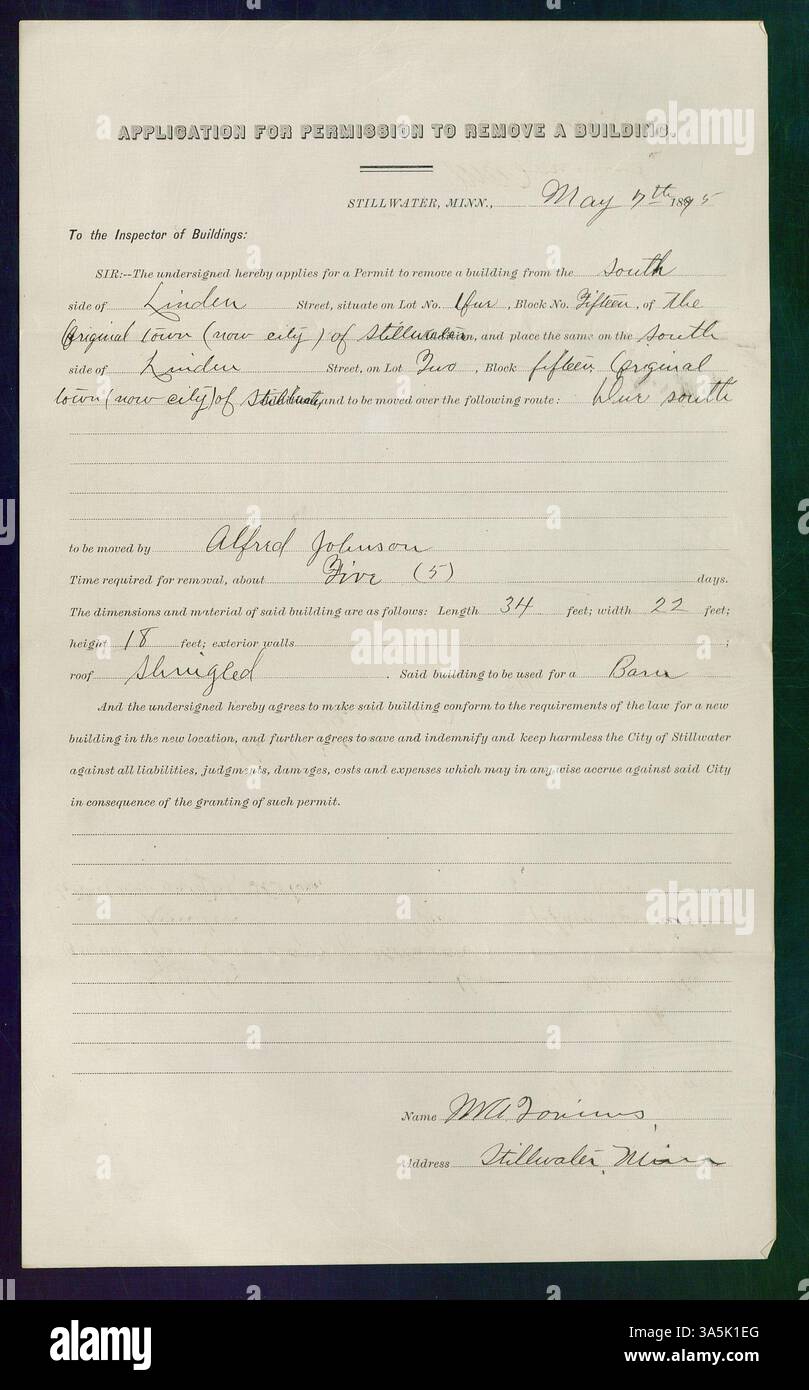 APPLICATION FOR PERMISSION TO REMOVE A BUILDING.
STILLWATER, MINN., May 7th 1895
To the Inspector of Buildings:
SIR:--The undersigned hereby applies for a Permit to remove a building from the south
side of Linden Street, situate on Lot No. , Block No. Fifteen, of the
Original town (now city) of Stillwater, and place the same on the south
side of Linden Street, on Lot Two, Block fifteen Original
town (now city) of Stillwater, and to be moved over the following route: Due south
to be moved by Alfred Johnson
Time required for removal, about Five (5) days.
The dimensions and material of said building are as follows: Length 34 feet; width 22 feet;
height 18 feet; exterior walls ;
roof Shingled . Said building to be used for a Barn
And the undersigned hereby agrees to make said building conform to the requirements of the law for a new
building in the new location, and further agrees to save and indemnify and keep harmless the City of Stillwater
against all liabilities, judgments, damages, costs and expenses which may in any wise accrue against said City
in consequence of the granting of such permit.
Name
Address Stillwater, Minn
alamy
Image ID: 3A5K1EG
www.alamy.com